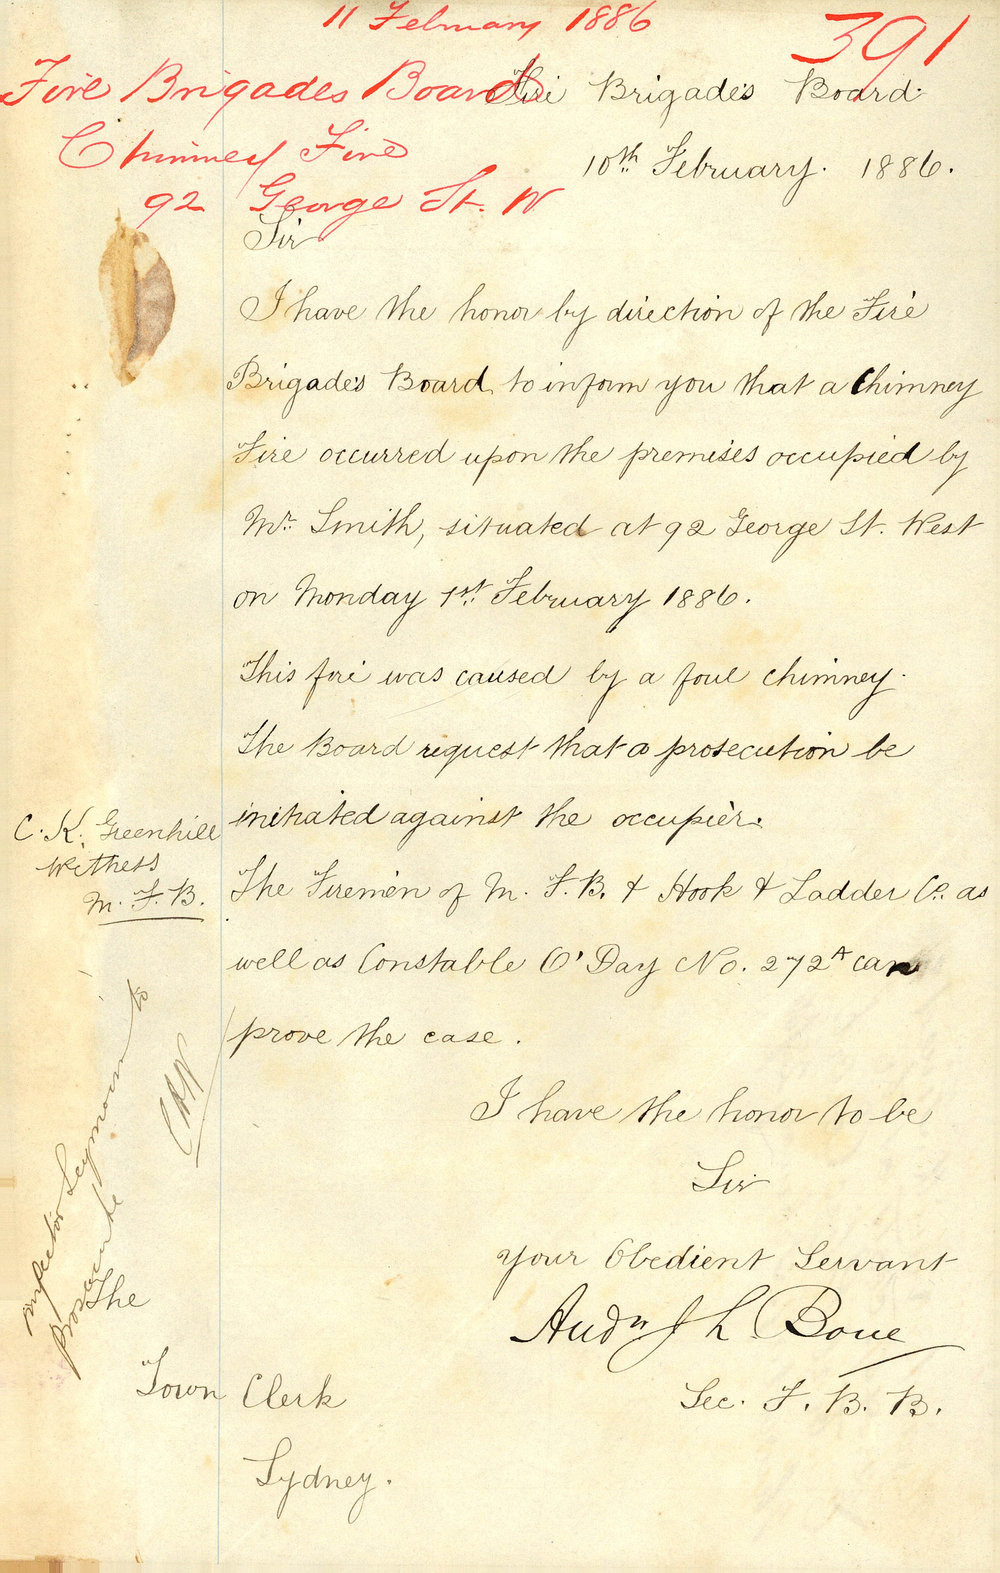 11 February 1886
391
Fire Brigades Board
Chimney Fire
92 George St. W
Fire Brigades Board.
10th February. 1886.
Sir
I have the honor by direction of the Fire
Brigades Board, to inform you that a Chimney
Fire occurred upon the premises occupied by
Mr. Smith, situated at 92 George St. West
on Monday 1st. February 1886.
This fire was caused by a foul chimney.
The Board request that a prosecution be
initiated against the occupier.
C. K. Greenhill
Witness
M. F. B.
The Firemen of M. F. B. & Hook & Ladder Co. as
well as Constable O'Day No. 272A can
prove the case.
Inspector Seymour to
Prosecute
I have the honor to be
Sir
Your Obedient Servant
Andw J L Bone
Sec. F. B. B.
The
Town Clerk
Sydney.